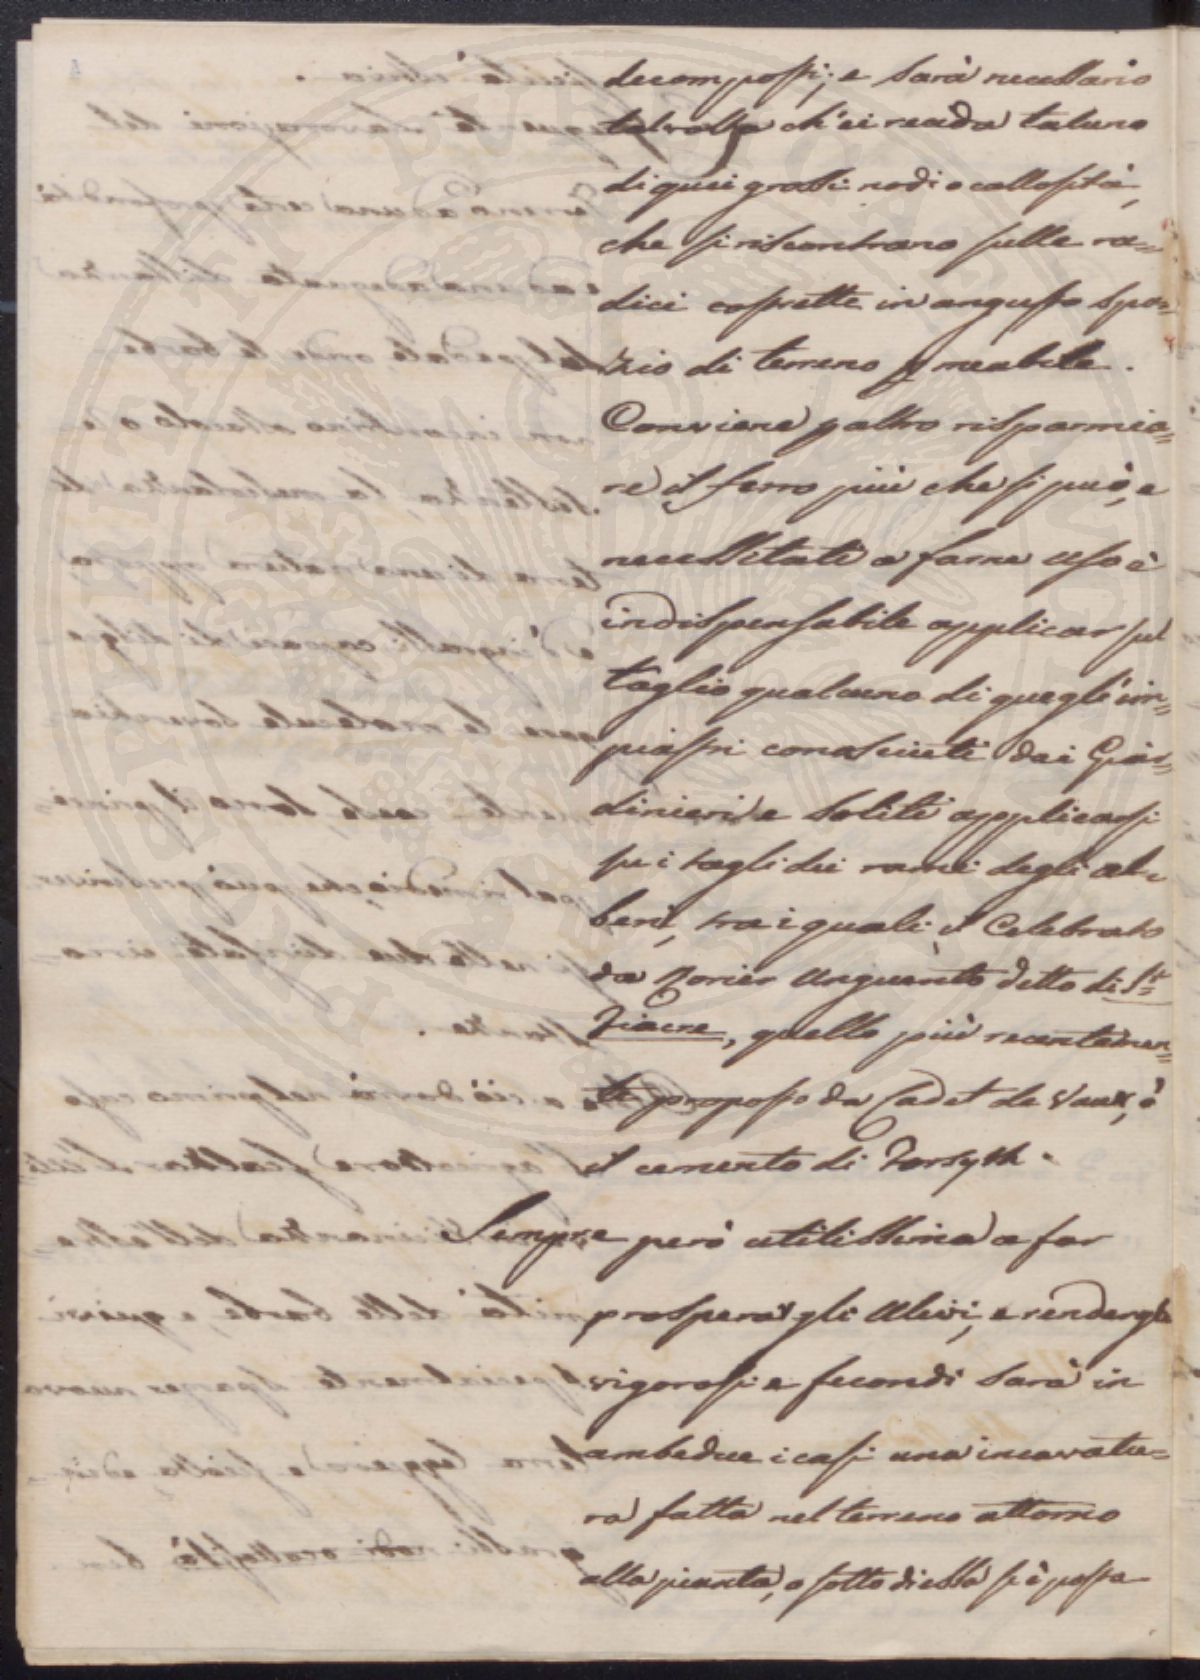 decomposti; e sarà necessario
talvolta ch'ei recida taluno
di quei grossi nodi o callosità,
che si riscontrano sulle ra=
dici costrette in angusto spa=
zio di terreno pmeabile.
Conviene paltro risparmia=
re il ferro più che si può, e
necessitati a farne uso è
indispensabile applicar sul
taglio qualcuno di quegl'im=
piastri conosciuti dai Giar=
dinieri e soliti applicarsi
su i tagli dei rami degli al=
beri, tra i quali il celebrato
da Rozier unguento detto di St
Fiacre, quello più recentemen=
te proposto da Cadet de Vaux, ò
il cemento di Forsyth.
Sempre però utilissima a far
prosperar gli Ulivi, e rendergli
vigorosi e fecondi sarà in
ambedue i casi una incavatu=
ra fatta nel terreno attorno
alla pianta, o sotto di essa si è posta